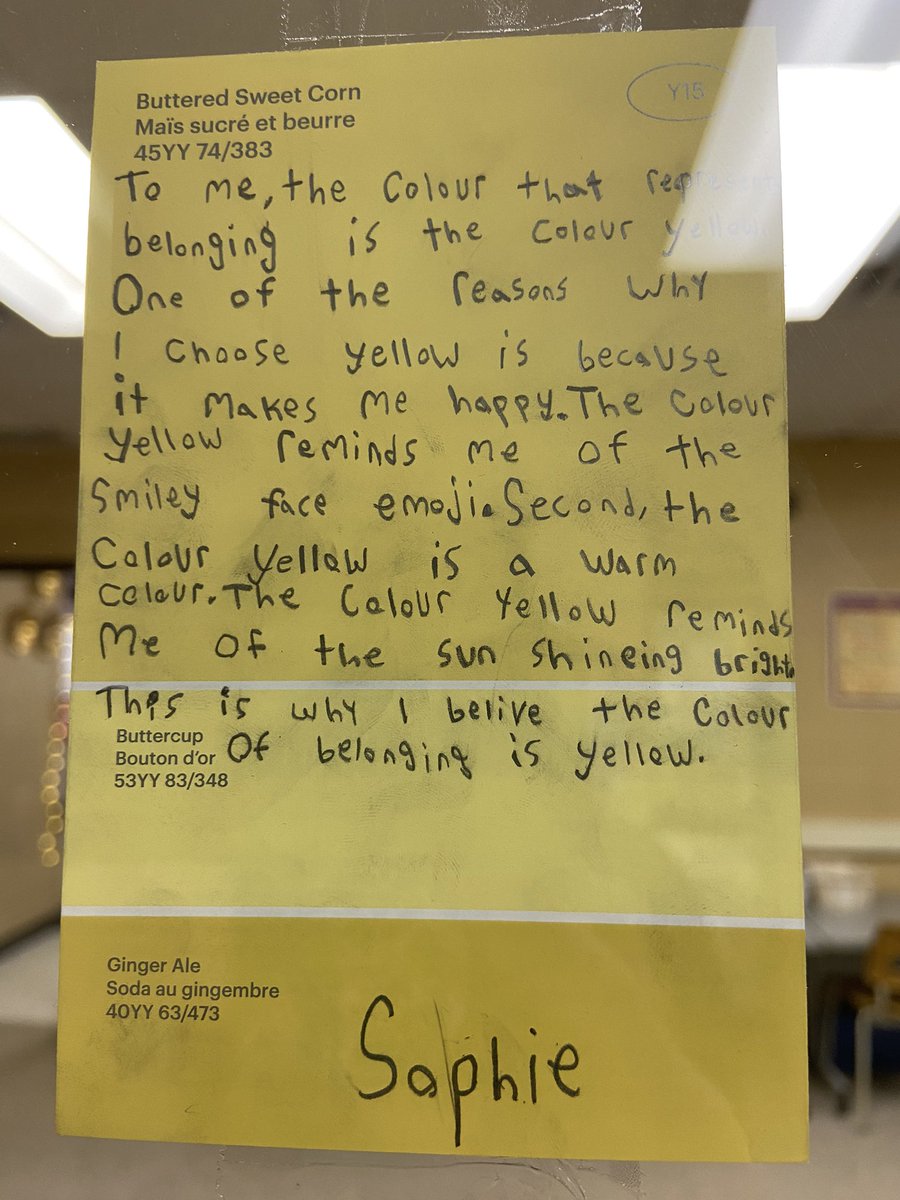 Buttered Sweet Corn
Maïs sucré et beurre
45YY 74/383
Y15
To me, the Colour that represents
belonging is the colour yellow.
One of the reasons why
I choose yellow is because
it makes me happy. The Colour
yellow reminds me of the
Smiley face emoji. Second, the
Colour yellow is a warm
colour. The Colour Yellow reminds
Me of the sun shineing bright.
This is why I belive the Colour
Buttercup
Bouton d'or
53YY 83/348
Of belonging is yellow.
Ginger Ale
Soda au gingembre
40YY 63/473
Sophie